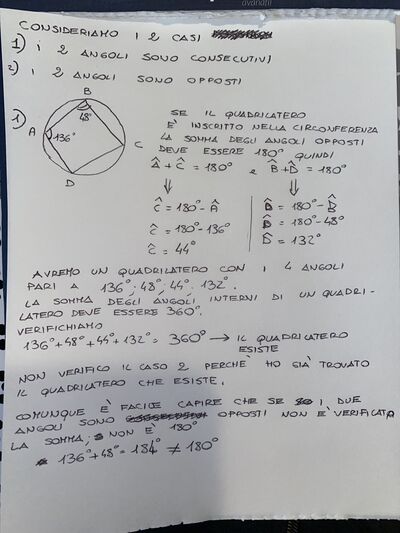 CONSIDERIAMO I 2 CASI
1) I 2 ANGOLI SONO CONSECUTIVI
2) I 2 ANGOLI SONO OPPOSTI
1)
B
48°
A
136°
C
D
SE IL QUADRILATERO
È INSCRITTO NELLA CIRCONFERENZA
LA SOMMA DEGLI ANGOLI OPPOSTI
DEVE ESSERE 180° QUINDI
Â + Ĉ = 180° e B̂ + D̂ = 180°
⇓ ⇓
Ĉ = 180° - Â
Ĉ = 180° - 136°
Ĉ = 44°
D̂ = 180° - B̂
D̂ = 180° - 48°
D̂ = 132°
AVREMO UN QUADRILATERO CON I 4 ANGOLI
PARI A 136°; 48°; 44°; 132°.
LA SOMMA DEGLI ANGOLI INTERNI DI UN QUADRI-
LATERO DEVE ESSERE 360°.
VERIFICHIAMO
136° + 48° + 44° + 132° = 360° → IL QUADRILATERO
ESISTE
NON VERIFICO IL CASO 2 PERCHÉ HO GIÀ TROVATO
IL QUADRILATERO CHE ESISTE.
COMUNQUE È FACILE CAPIRE CHE SE I DUE
ANGOLI SONO OPPOSTI NON È VERIFICATA
LA SOMMA; NON È 180°
136° + 48° = 184° ≠ 180°